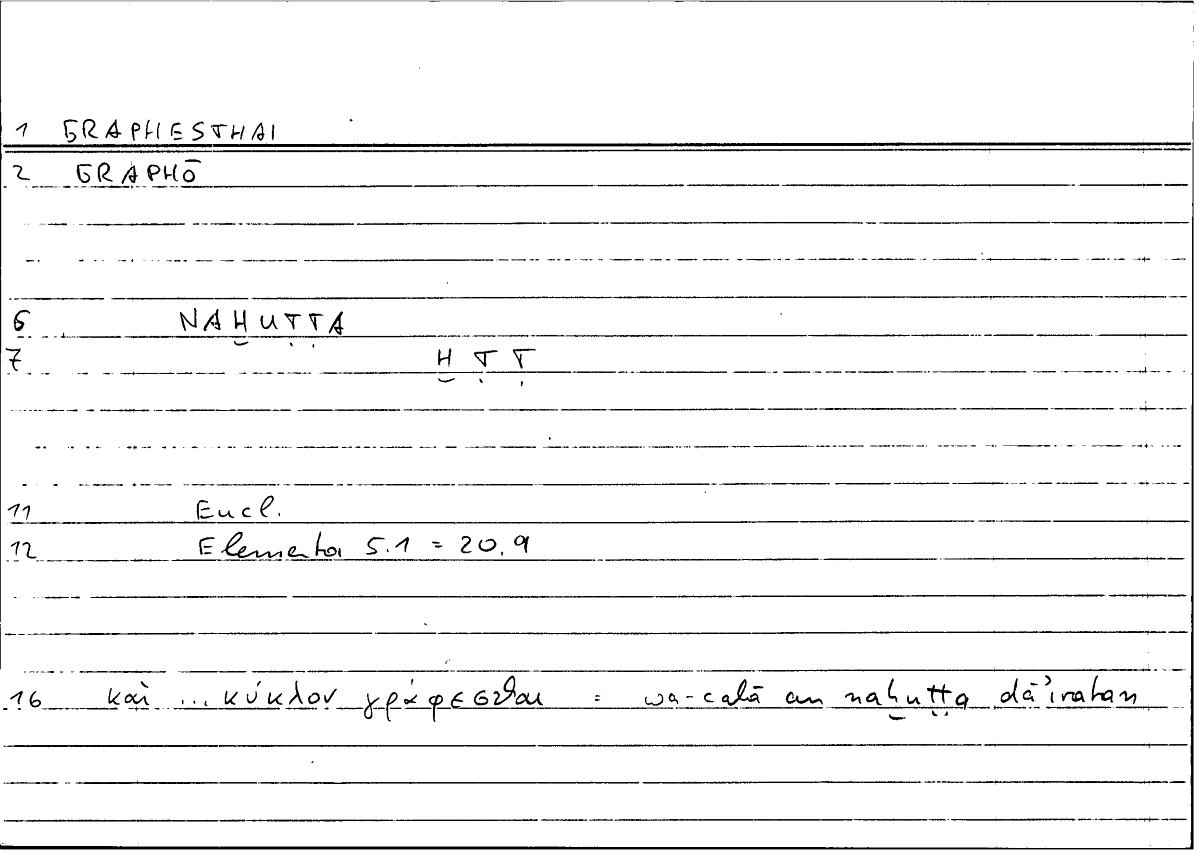 1 GRAPHESTHAI
2 GRAPHŌ
6 NAḪUṬṬA
7 Ḫ Ṭ Ṭ
11 Eucl.
12 Elementa 5.1 = 20.9
16 καὶ ... κύκλον γράφεσθαι = wa-calā an naḫuṭṭa dāʾiratan